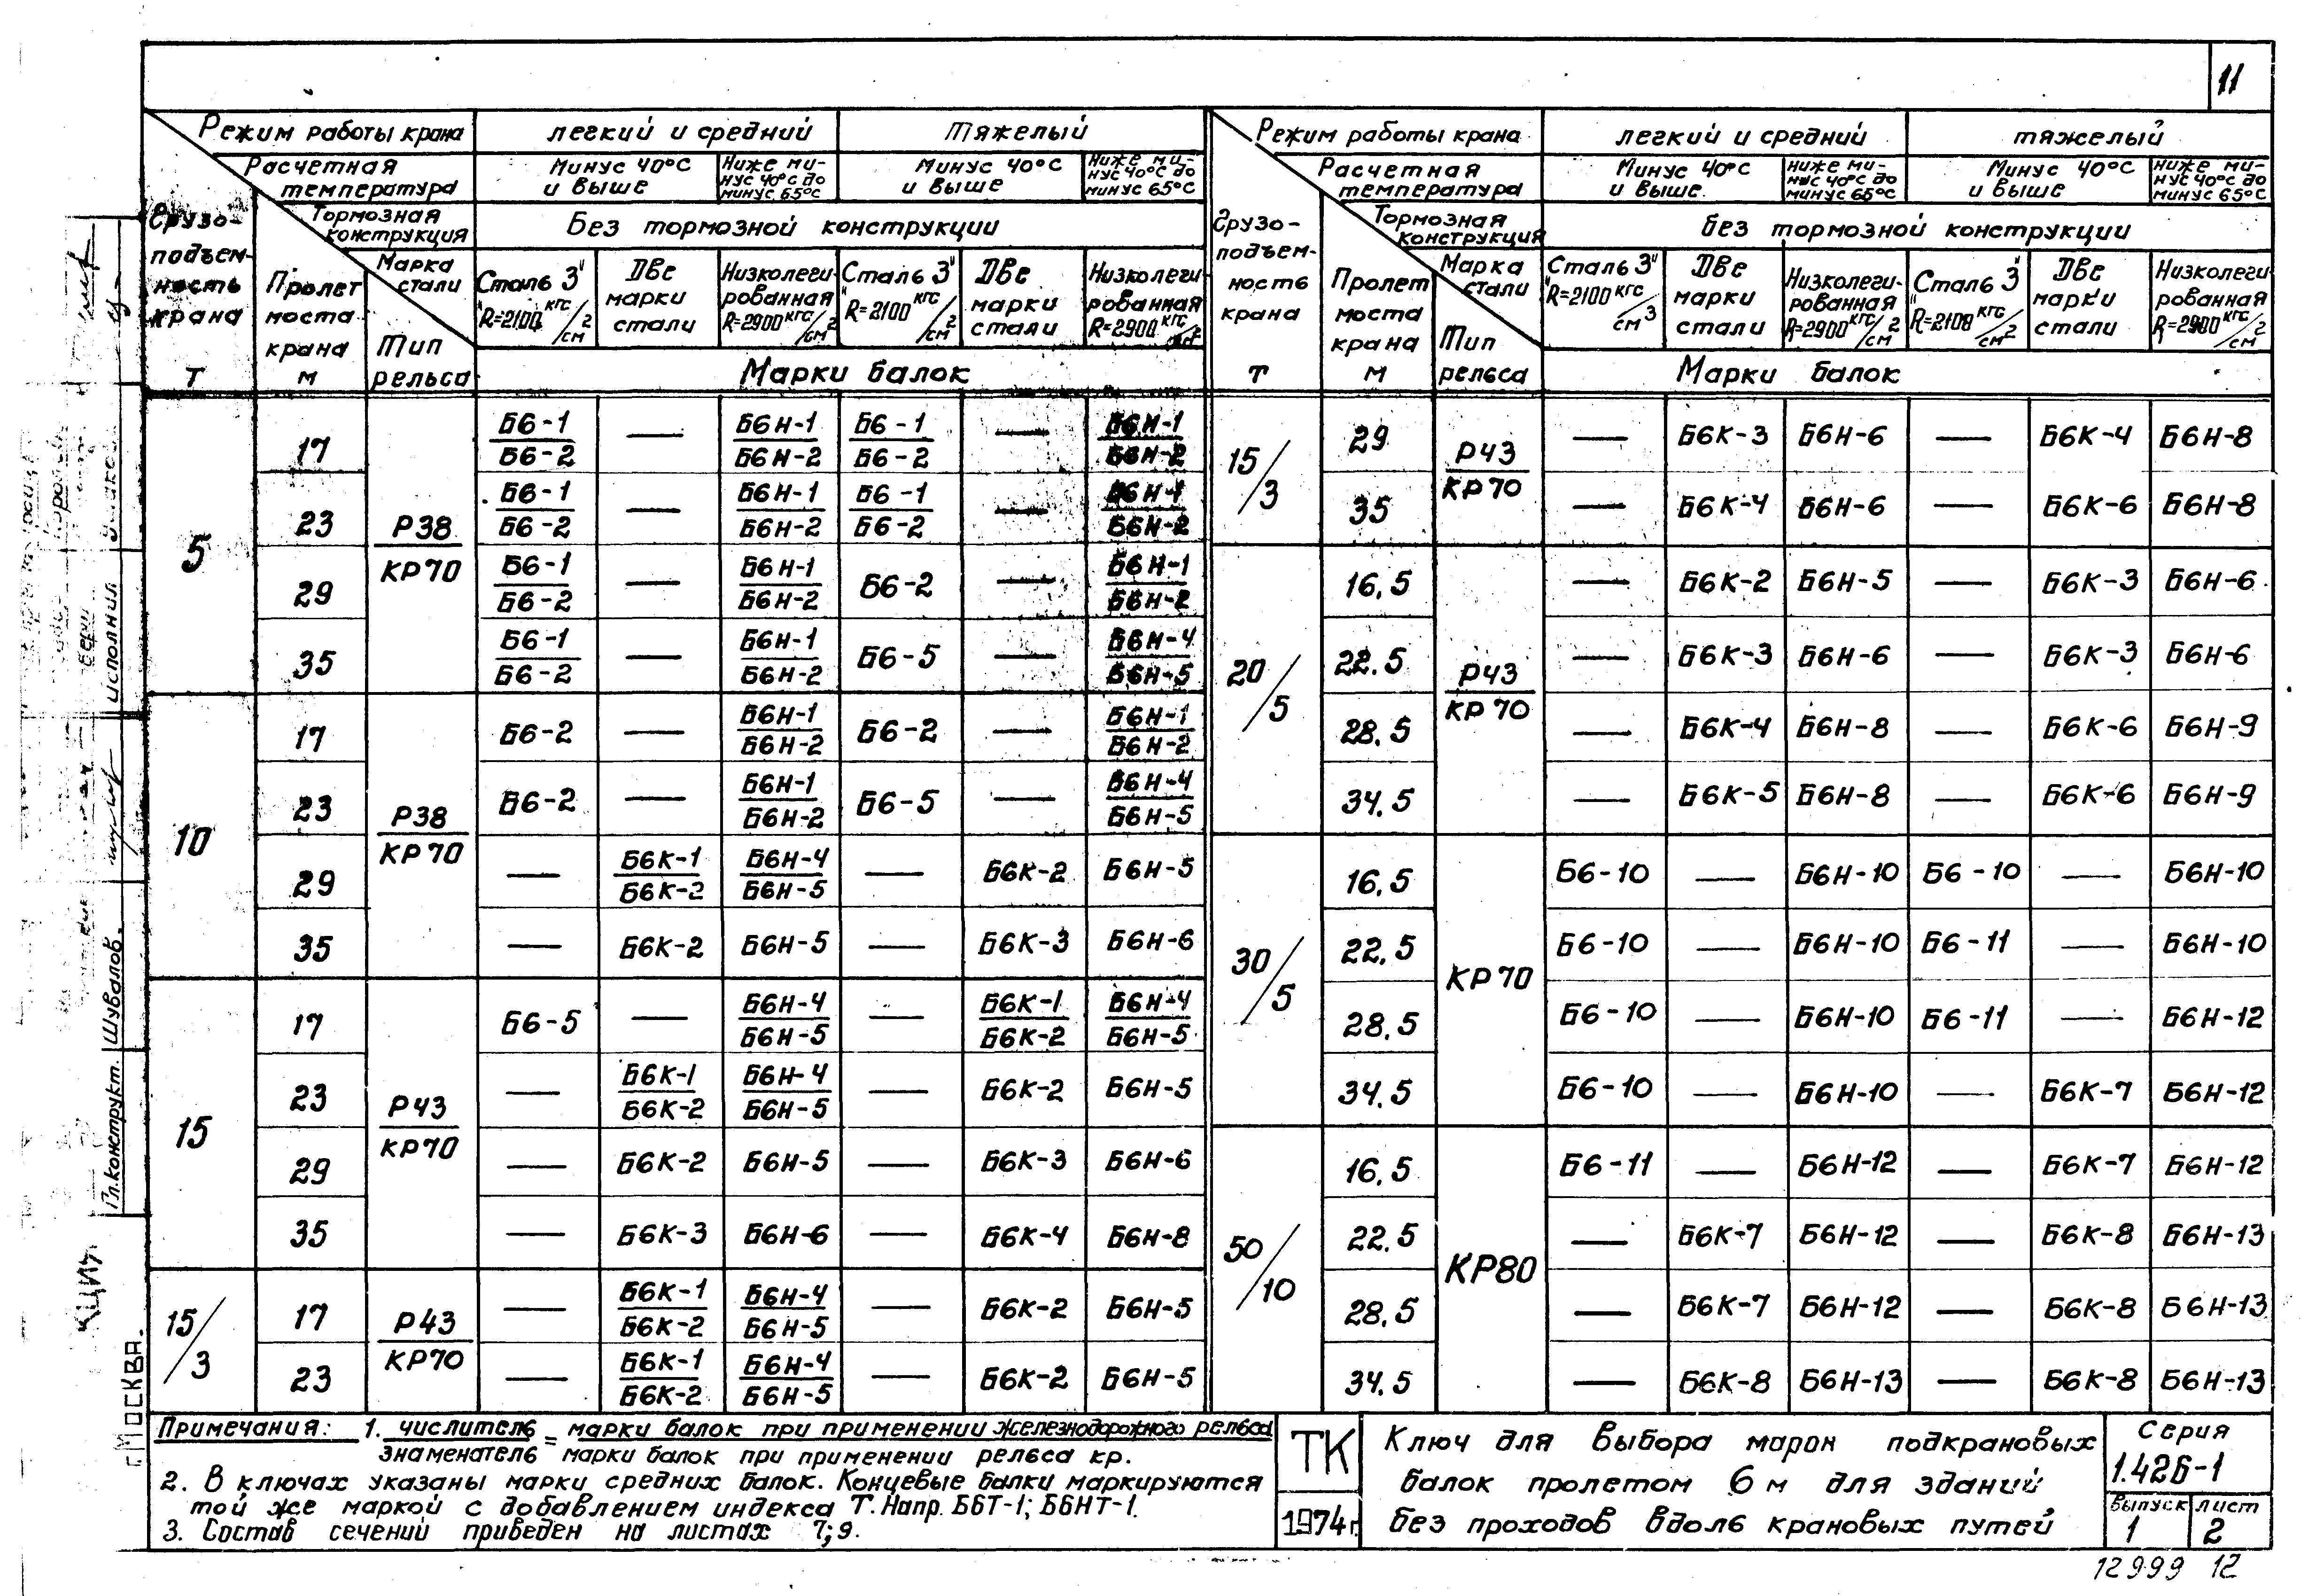 11
Режим работы крана | легкий и средний | Тяжелый
Расчетная температура | Минус 40°С и выше | Ниже минус 40°С до минус 65°С | Минус 40°С и выше | Ниже минус 40°С до минус 65°С
Тормозная конструкция | Без тормозной конструкции
Грузоподъемность крана Т | Пролет моста крана м | Тип рельса | Марка стали | Сталь 3" "R=2100 кгс/см² | Две марки стали | Низколегированная R=2900 кгс/см² | Сталь 3" "R=2100 кгс/см² | Две марки стали | Низколегированная R=2900 кгс/см²
Марки балок
5 | 17 | Р38/КР70 | Б6-1/Б6-2 | — | Б6Н-1/Б6Н-2 | Б6-1/Б6-2 | — | Б6Н-1/Б6Н-2
23 | Б6-1/Б6-2 | — | Б6Н-1/Б6Н-2 | Б6-1/Б6-2 | — | Б6Н-1/Б6Н-2
29 | Б6-1/Б6-2 | — | Б6Н-1/Б6Н-2 | Б6-2 | — | Б6Н-1/Б6Н-2
35 | Б6-1/Б6-2 | — | Б6Н-1/Б6Н-2 | Б6-5 | — | Б6Н-4/Б6Н-5
10 | 17 | Р38/КР70 | Б6-2 | — | Б6Н-1/Б6Н-2 | Б6-2 | — | Б6Н-1/Б6Н-2
23 | Б6-2 | — | Б6Н-1/Б6Н-2 | Б6-5 | — | Б6Н-4/Б6Н-5
29 | — | Б6К-1/Б6К-2 | Б6Н-4/Б6Н-5 | — | Б6К-2 | Б6Н-5
35 | — | Б6К-2 | Б6Н-5 | — | Б6К-3 | Б6Н-6
15 | 17 | Р43/КР70 | Б6-5 | — | Б6Н-4/Б6Н-5 | — | Б6К-1/Б6К-2 | Б6Н-4/Б6Н-5
23 | — | Б6К-1/Б6К-2 | Б6Н-4/Б6Н-5 | — | Б6К-2 | Б6Н-5
29 | — | Б6К-2 | Б6Н-5 | — | Б6К-3 | Б6Н-6
35 | — | Б6К-3 | Б6Н-6 | — | Б6К-4 | Б6Н-8
15/3 | 17 | Р43/КР70 | — | Б6К-1/Б6К-2 | Б6Н-4/Б6Н-5 | — | Б6К-2 | Б6Н-5
23 | — | Б6К-1/Б6К-2 | Б6Н-4/Б6Н-5 | — | Б6К-2 | Б6Н-5
Режим работы крана | легкий и средний | тяжелый
Расчетная температура | Минус 40°С и выше. | Ниже минус 40°С до минус 65°С | Минус 40°С и выше | Ниже минус 40°С до минус 65°С
Тормозная конструкция | Без тормозной конструкции
Грузоподъемность крана т | Пролет моста крана м | Тип рельса | Марка стали | Сталь 3" "R=2100 кгс/см³ | Две марки стали | Низколегированная R=2900 кгс/см² | Сталь 3" "R=2100 кгс/см² | Две марки стали | Низколегированная R=2900 кгс/см²
Марки балок
15/3 | 29 | Р43/КР70 | — | Б6К-3 | Б6Н-6 | — | Б6К-4 | Б6Н-8
35 | — | Б6К-4 | Б6Н-6 | — | Б6К-6 | Б6Н-8
20/5 | 16,5 | Р43/КР70 | — | Б6К-2 | Б6Н-5 | — | Б6К-3 | Б6Н-6
22,5 | — | Б6К-3 | Б6Н-6 | — | Б6К-3 | Б6Н-6
28,5 | — | Б6К-4 | Б6Н-8 | — | Б6К-6 | Б6Н-9
34,5 | — | Б6К-5 | Б6Н-8 | — | Б6К-6 | Б6Н-9
30/5 | 16,5 | КР70 | Б6-10 | — | Б6Н-10 | Б6-10 | — | Б6Н-10
22,5 | Б6-10 | — | Б6Н-10 | Б6-11 | — | Б6Н-10
28,5 | Б6-10 | — | Б6Н-10 | Б6-11 | — | Б6Н-12
34,5 | Б6-10 | — | Б6Н-10 | — | Б6К-7 | Б6Н-12
50/10 | 16,5 | КР80 | Б6-11 | — | Б6Н-12 | — | Б6К-7 | Б6Н-12
22,5 | — | Б6К-7 | Б6Н-12 | — | Б6К-8 | Б6Н-13
28,5 | — | Б6К-7 | Б6Н-12 | — | Б6К-8 | Б6Н-13
34,5 | — | Б6К-8 | Б6Н-13 | — | Б6К-8 | Б6Н-13
Примечания: 1. числитель = марки балок при применении железнодорожного рельса
знаменатель = марки балок при применении рельса кр.
2. В ключах указаны марки средних балок. Концевые балки маркируются
той же маркой с добавлением индекса Т. Напр. Б6Т-1; Б6НТ-1.
3. Состав сечений приведен на листах 7;9.
ТК
1974г.
Ключ для выбора марок подкрановых
балок пролетом 6 м для зданий
без проходов вдоль крановых путей
Серия
1.426-1
Выпуск | лист
1 | 2
12999 12
Исполнил
Гл.конструкт. Шувалов.
г. Москва.